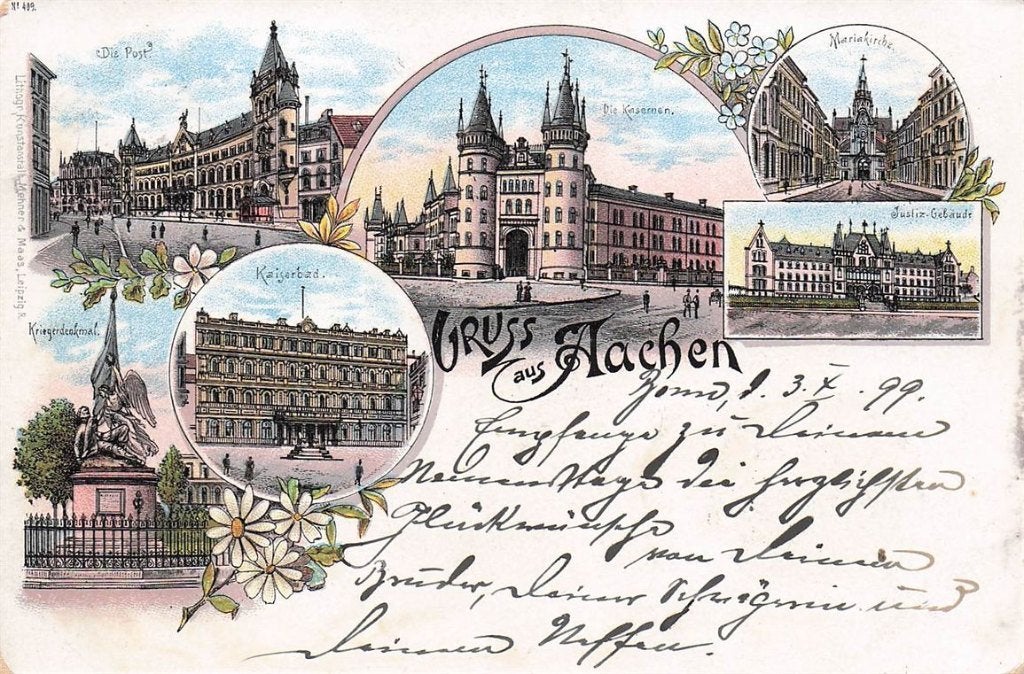 No 409.
"Die Post"
Die Kasernen.
Mariakirche.
Justiz-Gebäude
Kaiserbad.
Kriegerdenkmal.
Lithogr. Kunstanstalt Mehner & Maas, Leipzig R.
GRUSS
aus Aachen
Bonn, d. 3. X. 99.
Empfange zu Deinem
Namenstage die herzlichsten
Glückwünsche
von Deinem
Bruder, Deiner Schwägerin und
Deinem Neffen.